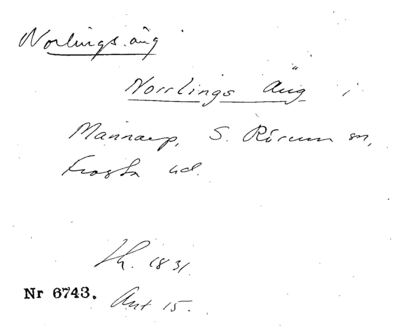 Norlings äng
Norrlings Äng i
Mannarp, S. Rörum sn,
Frosta hd.
Lh. 1831.
Nr 6743. Akt 15.